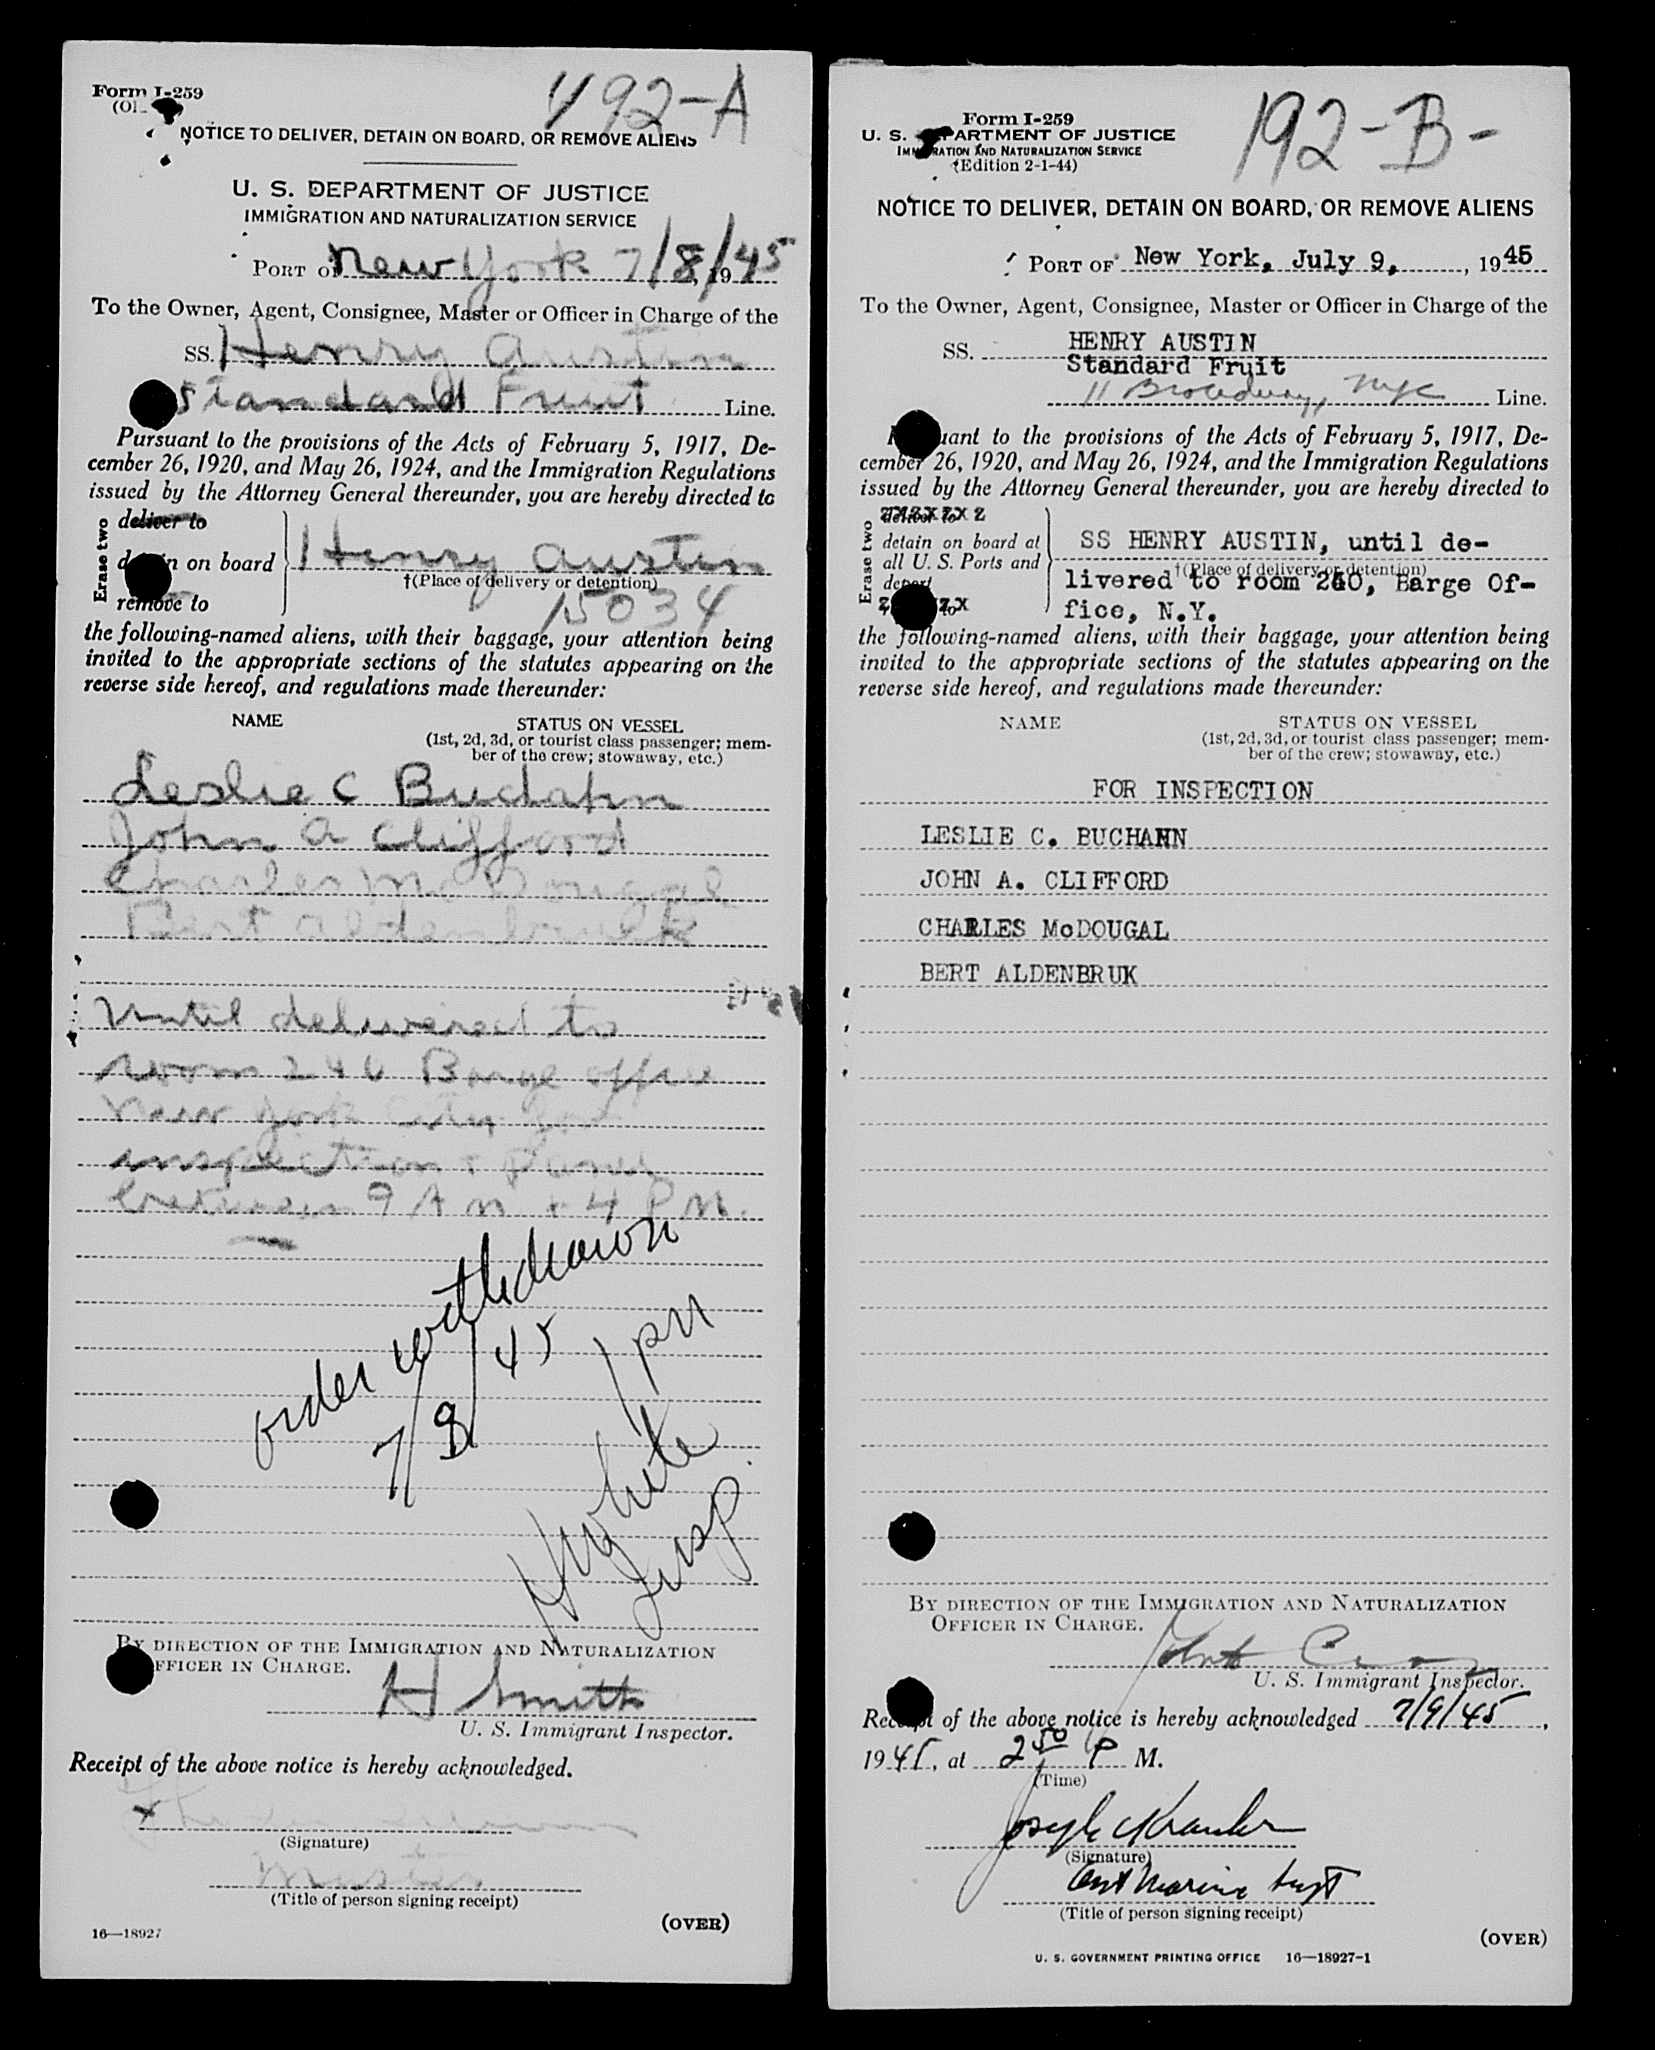 492-A
Form I-259
NOTICE TO DELIVER, DETAIN ON BOARD, OR REMOVE ALIENS
U. S. DEPARTMENT OF JUSTICE
IMMIGRATION AND NATURALIZATION SERVICE
PORT OF New York 7/8/, 1945
To the Owner, Agent, Consignee, Master or Officer in Charge of the
SS. Henry Austin
Standard Fruit Line.
Pursuant to the provisions of the Acts of February 5, 1917, De-
cember 26, 1920, and May 26, 1924, and the Immigration Regulations
issued by the Attorney General thereunder, you are hereby directed to
Erase two
deliver to
detain on board
remove to
Henry Austin
†(Place of delivery or detention)
15034
the following-named aliens, with their baggage, your attention being
invited to the appropriate sections of the statutes appearing on the
reverse side hereof, and regulations made thereunder:
NAME STATUS ON VESSEL
(1st, 2d, 3d, or tourist class passenger; mem-
ber of the crew; stowaway, etc.)
Leslie C Buchahn
John A Clifford
Charles McDougal
Bert Aldenbruk
Until delivered to
room 240 Barge office
New York City for
inspection
between 9 AM + 4 PM.
order withdrawn
7/9/45 1 PM
White
Insp.
BY DIRECTION OF THE IMMIGRATION AND NATURALIZATION
OFFICER IN CHARGE.
H Smith
U. S. Immigrant Inspector.
Receipt of the above notice is hereby acknowledged.
x
(Signature)
Master
(Title of person signing receipt)
(OVER)
16—18927
192-B-
Form I-259
U. S. DEPARTMENT OF JUSTICE
IMMIGRATION AND NATURALIZATION SERVICE
(Edition 2-1-44)
NOTICE TO DELIVER, DETAIN ON BOARD, OR REMOVE ALIENS
PORT OF New York, July 9, , 1945
To the Owner, Agent, Consignee, Master or Officer in Charge of the
SS. HENRY AUSTIN
Standard Fruit
11 Broadway, NYC Line.
Pursuant to the provisions of the Acts of February 5, 1917, De-
cember 26, 1920, and May 26, 1924, and the Immigration Regulations
issued by the Attorney General thereunder, you are hereby directed to
Erase two
deliver to
detain on board at
all U. S. Ports and
deport
SS HENRY AUSTIN, until de-
†(Place of delivery or detention)
livered to room 240, Barge Of-
fice, N.Y.
the following-named aliens, with their baggage, your attention being
invited to the appropriate sections of the statutes appearing on the
reverse side hereof, and regulations made thereunder:
NAME STATUS ON VESSEL
(1st, 2d, 3d, or tourist class passenger; mem-
ber of the crew; stowaway, etc.)
FOR INSPECTION
LESLIE C. BUCHANN
JOHN A. CLIFFORD
CHARLES McDOUGAL
BERT ALDENBRUK
BY DIRECTION OF THE IMMIGRATION AND NATURALIZATION
OFFICER IN CHARGE.
U. S. Immigrant Inspector.
Receipt of the above notice is hereby acknowledged 7/9/45,
1945, at 2 50 P M.
(Time)
(Signature)
Asst Marine Supt
(Title of person signing receipt)
(OVER)
U. S. GOVERNMENT PRINTING OFFICE 16—18927-1